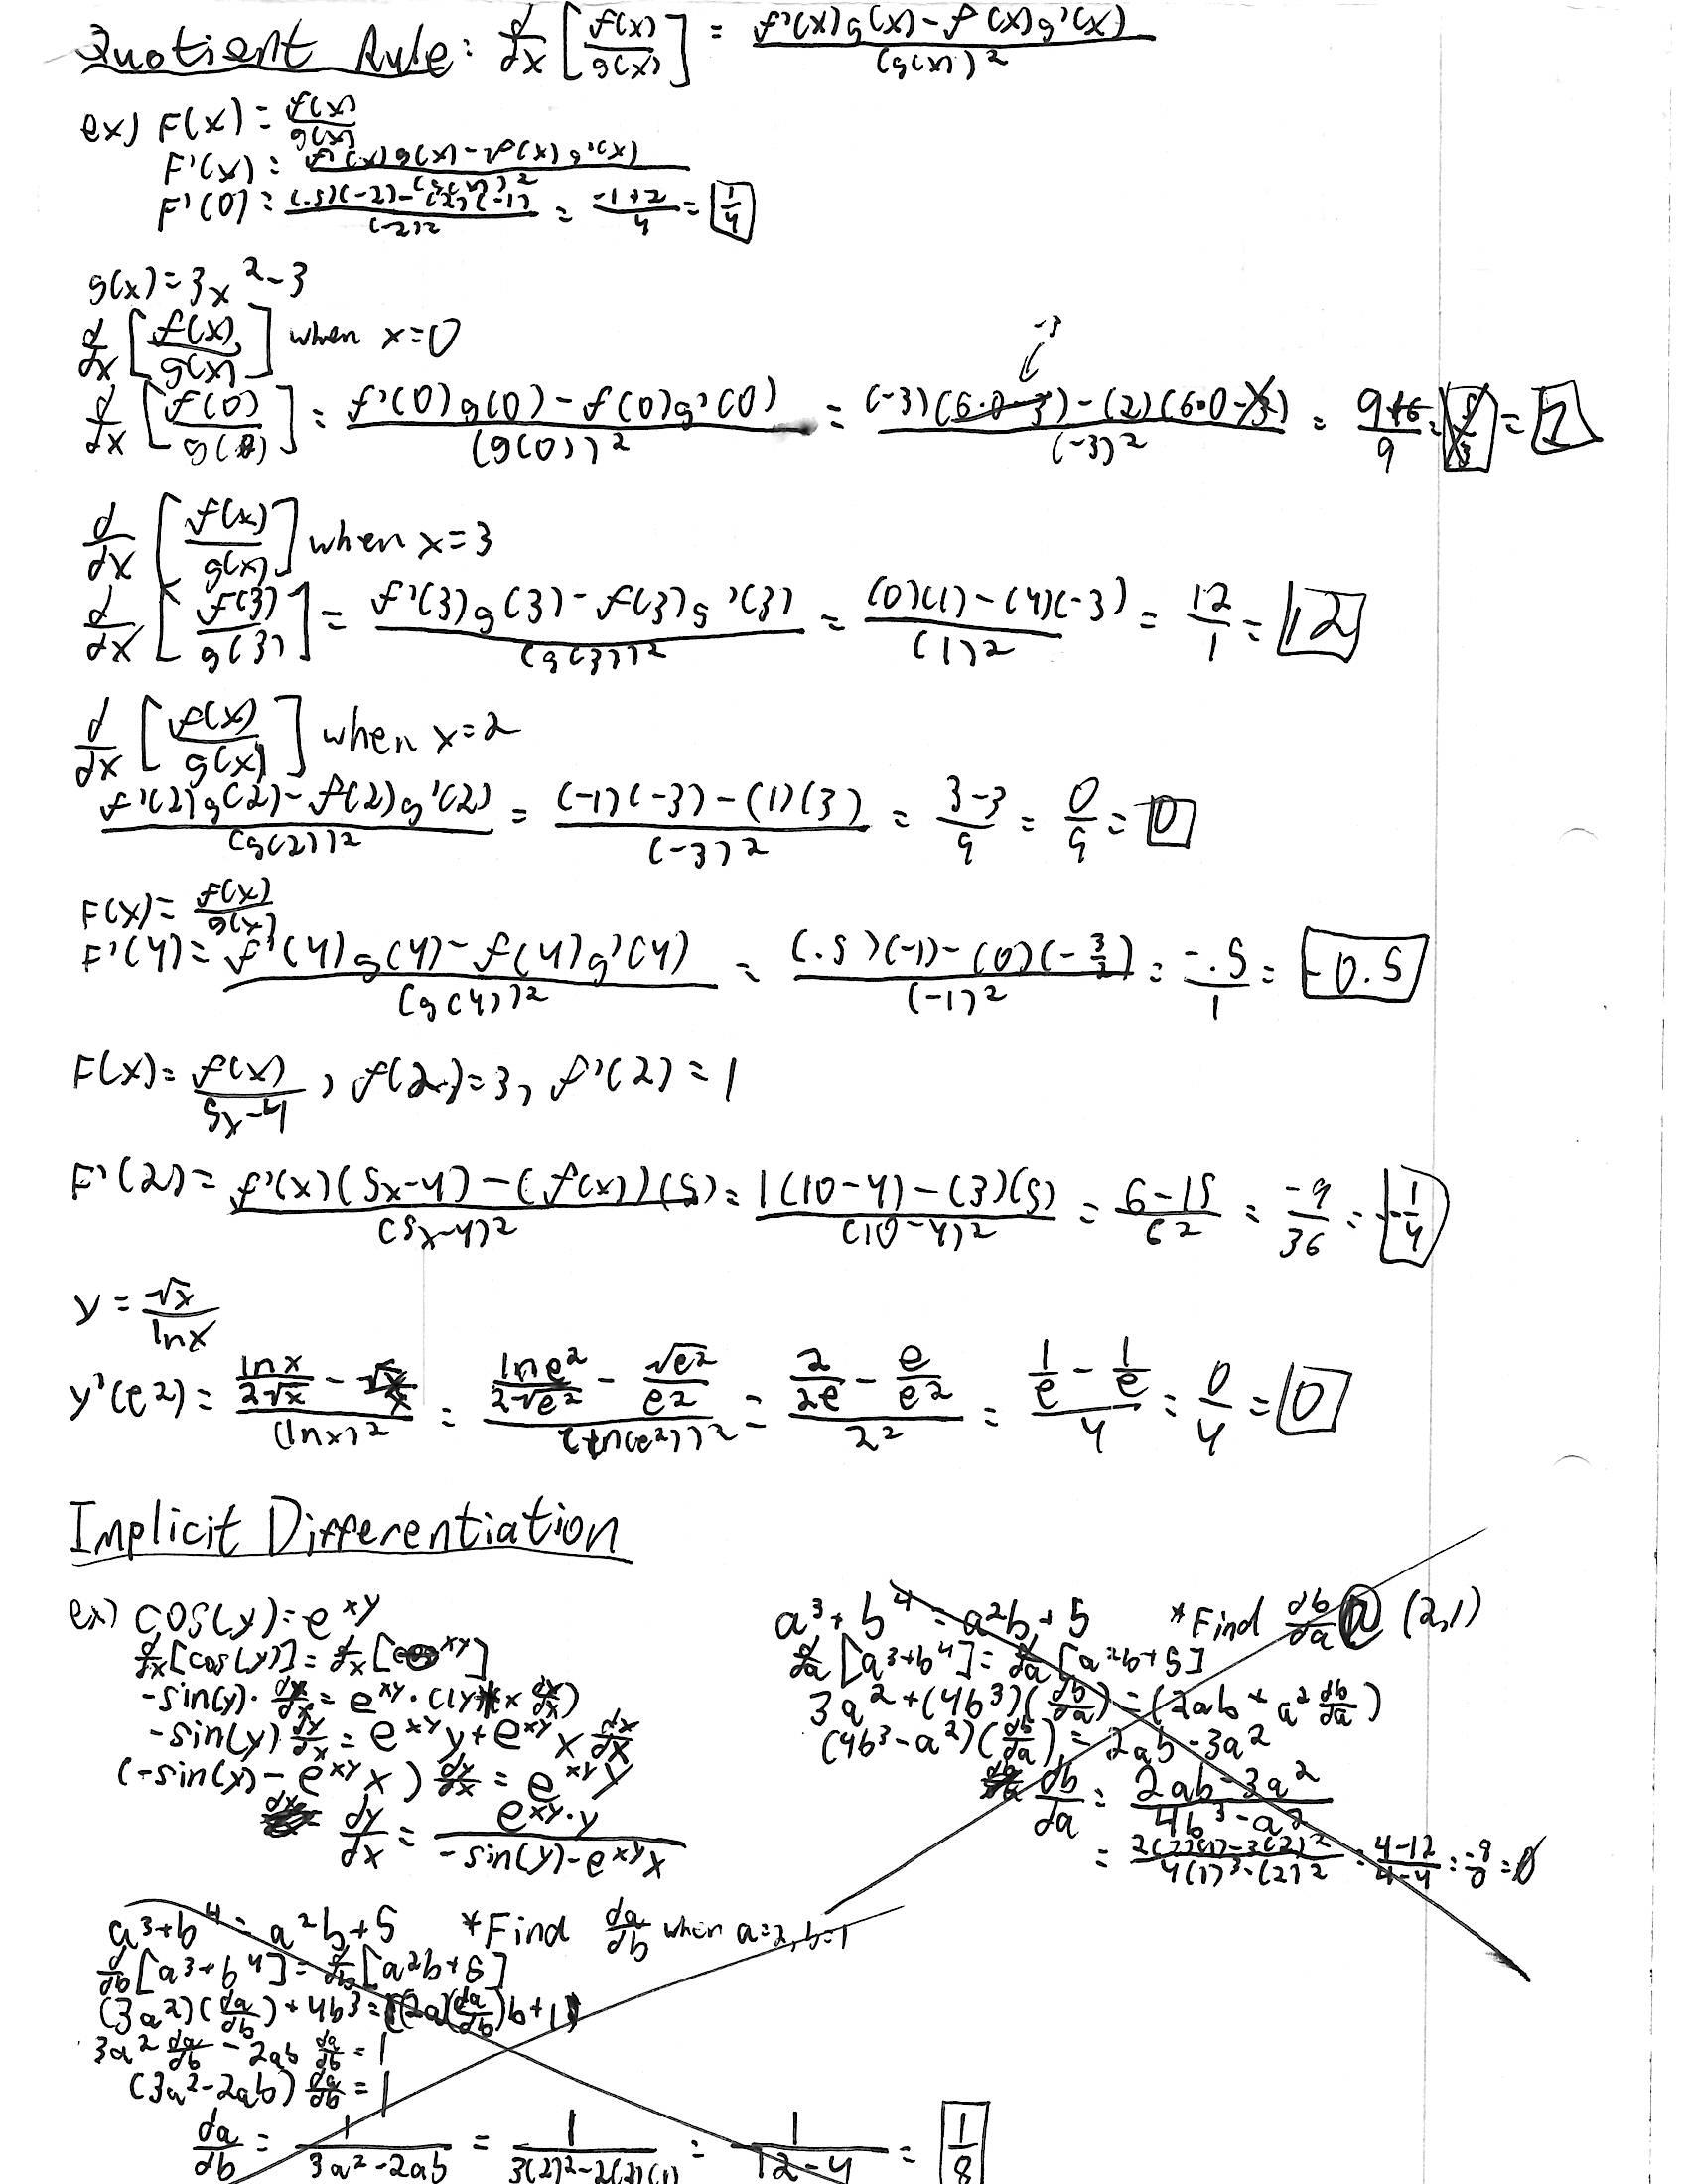 Quotient Rule: d/dx [f(x)/g(x)] = (f'(x)g(x) - f(x)g'(x))/(g(x))^2
ex) F(x) = f(x)/g(x)
F'(x) = (f'(x)g(x) - f(x)g'(x))/(g(x))^2
F'(0) = ((.5)(-2) - (2)(-1))/(-2)^2 = (-1+2)/4 = 1/4
g(x) = 3x^2 - 3
d/dx [f(x)/g(x)] when x=0
-3
d/dx [f(0)/g(0)] = (f'(0)g(0) - f(0)g'(0))/(g(0))^2 = ((-3)(6·0-3) - (2)(6·0-3))/(-3)^2 = (9+6)/9 = 5/3 = 1
d/dx [f(x)/g(x)] when x=3
d/dx [f(3)/g(3)] = (f'(3)g(3) - f(3)g'(3))/(g(3))^2 = ((0)(1) - (4)(-3))/(1)^2 = 12/1 = 12
d/dx [f(x)/g(x)] when x=2
(f'(2)g(2) - f(2)g'(2))/(g(2))^2 = ((-1)(-3) - (1)(3))/(-3)^2 = (3-3)/9 = 0/9 = 0
F(x) = f(x)/g(x)
F'(4) = (f'(4)g(4) - f(4)g'(4))/(g(4))^2 = ((.5)(-1) - (0)(-3/2))/(-1)^2 = -.5/1 = -0.5
F(x) = f(x)/(5x-4), f(2)=3, f'(2)=1
F'(2) = (f'(x)(5x-4) - (f(x))(5))/(5x-4)^2 = (1(10-4) - (3)(5))/(10-4)^2 = (6-15)/6^2 = -9/36 = -1/4
y = √x/lnx
y'(e^2) = (lnx/(2√x) - √x/x)/(lnx)^2 = (lne^2/(2√e^2) - √e^2/e^2)/(ln(e^2))^2 = (2/2e - e/e^2)/2^2 = (1/e - 1/e)/4 = 0/4 = 0
Implicit Differentiation
ex) cos(y) = e^xy
d/dx[cos(y)] = d/dx[e^xy]
-sin(y)·dy/dx = e^xy·(1y+x dx/dx)
-sin(y) dy/dx = e^xy y + e^xy x dx/dx
(-sin(x) - e^xy x) dy/dx = e^xy y
dy/dx = (e^xy·y)/(-sin(y)-e^xy x)
a^3+b^4 = a^2b+5 *Find db/da @ (2,1)
d/da [a^3+b^4] = d/da [a^2b+5]
3a^2+(4b^3)(db/da) = (2ab + a^2 db/da)
(4b^3-a^2)(db/da) = 2ab-3a^2
db/da = (2ab-3a^2)/(4b^3-a^2)
= (2(2)(1)-3(2)^2)/(4(1)^3-(2)^2) = (4-12)/(4-4) = -8/0 = 0
a^3+b^4 = a^2b+5 *Find da/db when a=2, b=1
d/db[a^3+b^4] = d/db[a^2b+5]
(3a^2)(da/db)+4b^3 = (2a(da/db)b+1)
3a^2 da/db - 2ab da/db = 1
(3a^2-2ab) da/db = 1
da/db = 1/(3a^2-2ab) = 1/(3(2)^2-2(2)(1)) = 1/(12-4) = 1/8